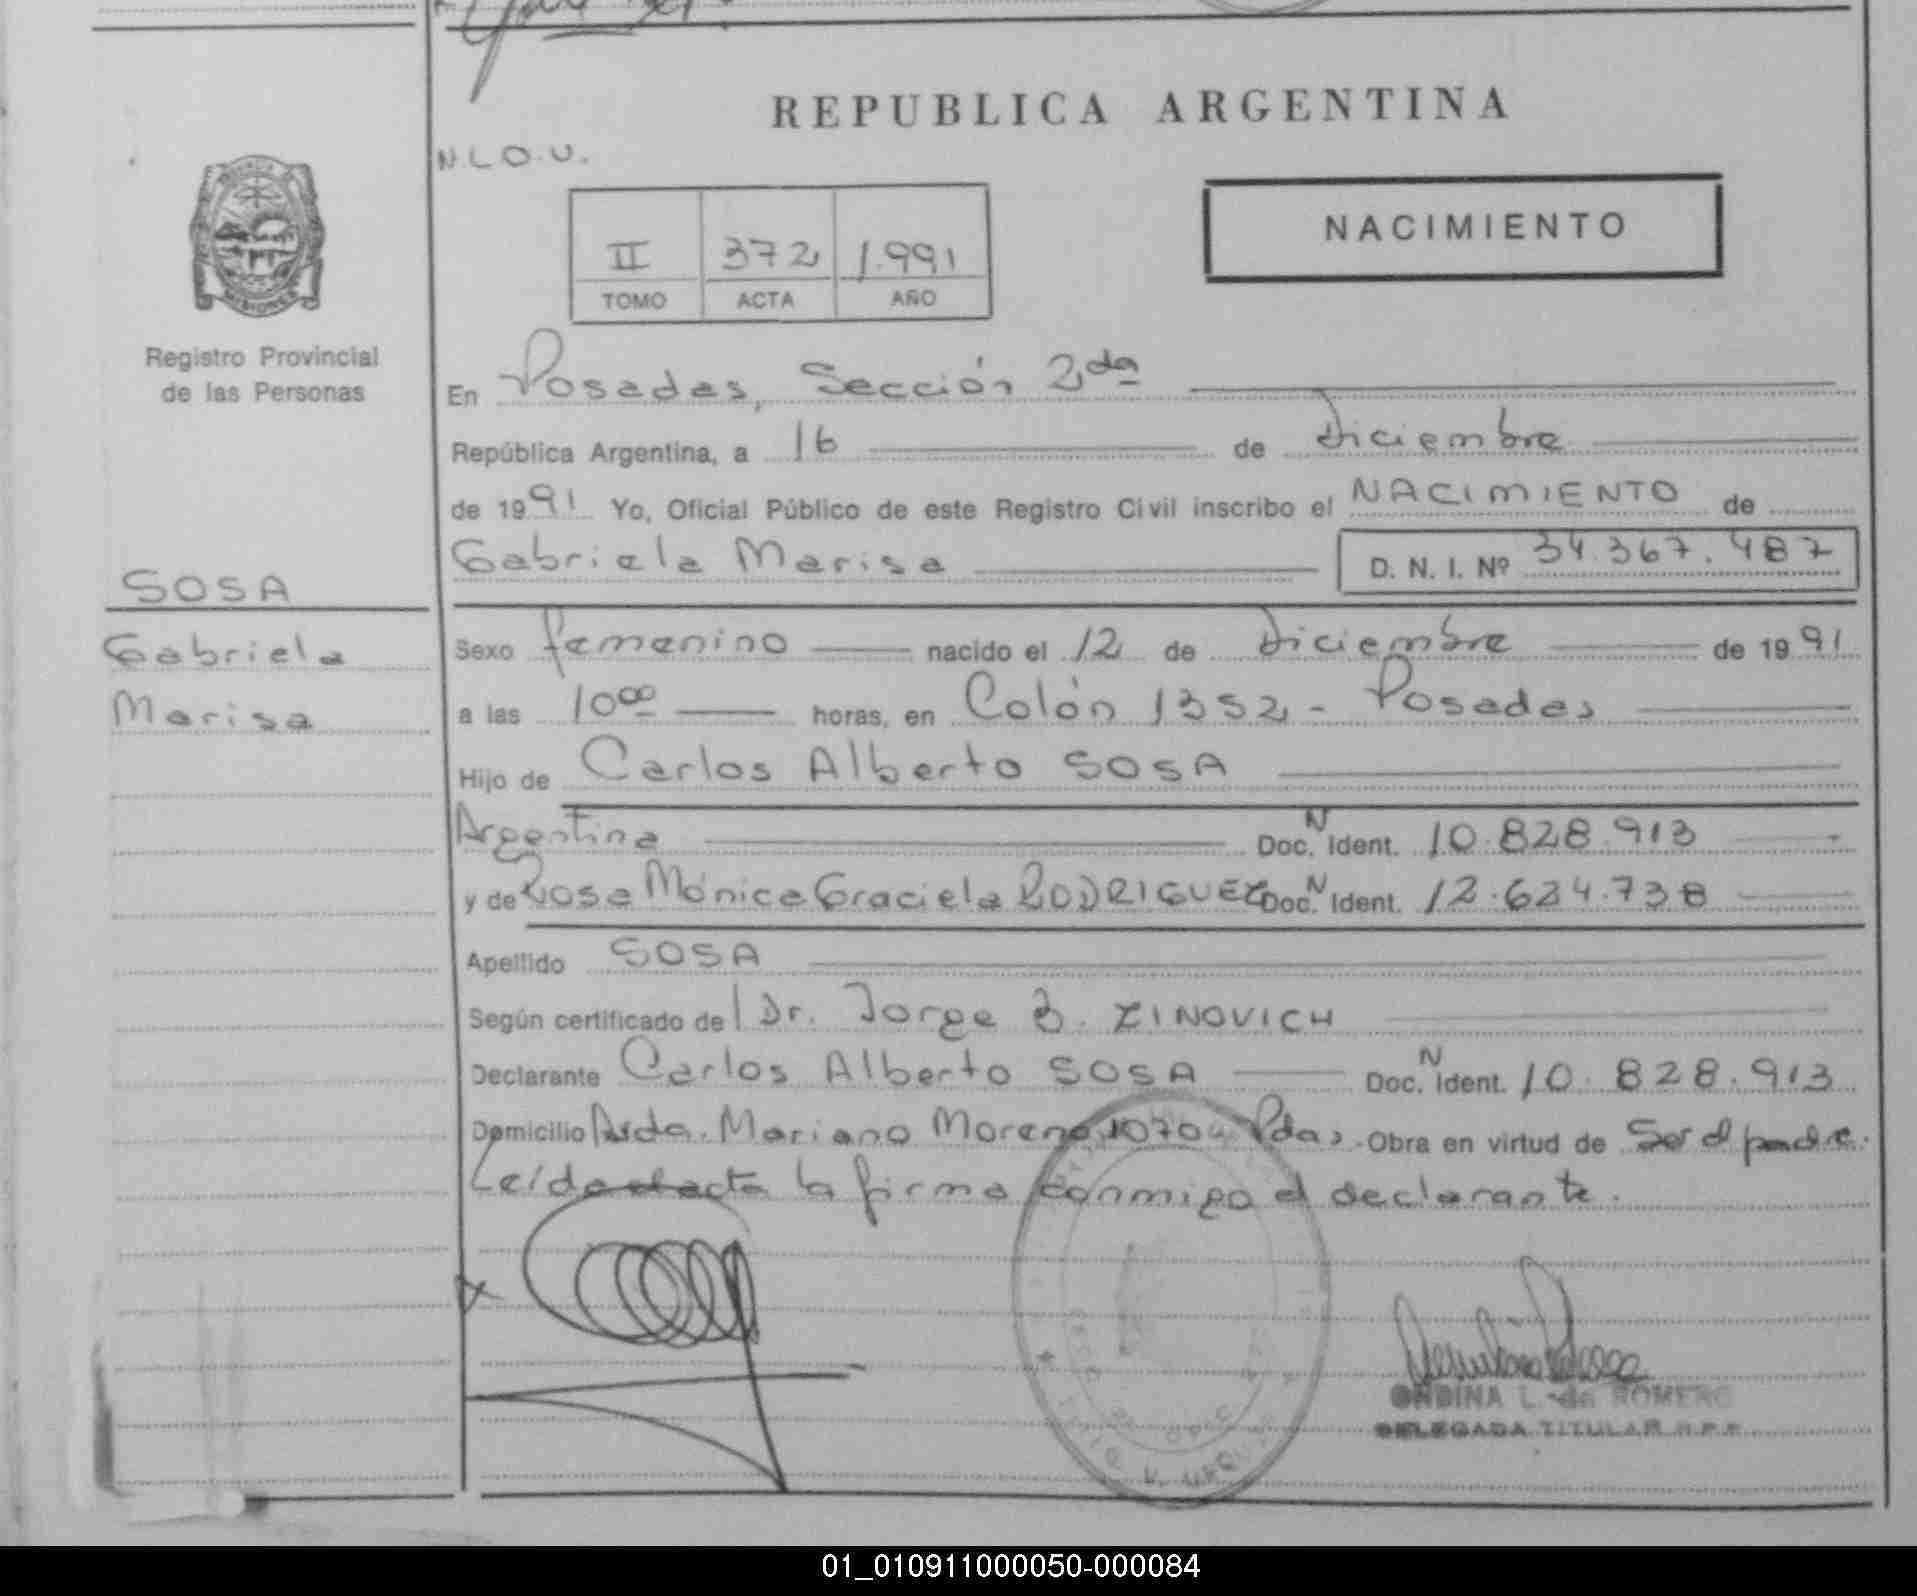 REPUBLICA ARGENTINA
N.L.O.U.
NACIMIENTO
II 372 1.991
TOMO ACTA AÑO
MISIONES
Registro Provincial
de las Personas
En Posadas, Sección 2da
República Argentina, a 16 de Diciembre
de 1991 Yo, Oficial Público de este Registro Civil inscribo el NACIMIENTO de
Gabriela Marisa D. N. I. Nº 34.367.487
SOSA
Gabriela
Marisa
Sexo femenino nacido el 12 de Diciembre de 1991
a las 10 00 horas, en Colón 1352 - Posadas
Hijo de Carlos Alberto SOSA
Argentina Doc. N Ident. 10.828.913
y de Rosa Mónica Graciela RODRIGUEZ Doc. N Ident. 12.624.738
Apellido SOSA
Según certificado del Dr. Jorge B. ZINOVICH
Declarante Carlos Alberto SOSA Doc. N Ident. 10.828.913
Domicilio Avda. Mariano Moreno 1070 Pdas. Obra en virtud de Ser el padre.
Leída el acta la firma conmigo el declarante.
ONDINA L. de ROMERO
DELEGADA TITULAR R.P.P.
01_010911000050-000084